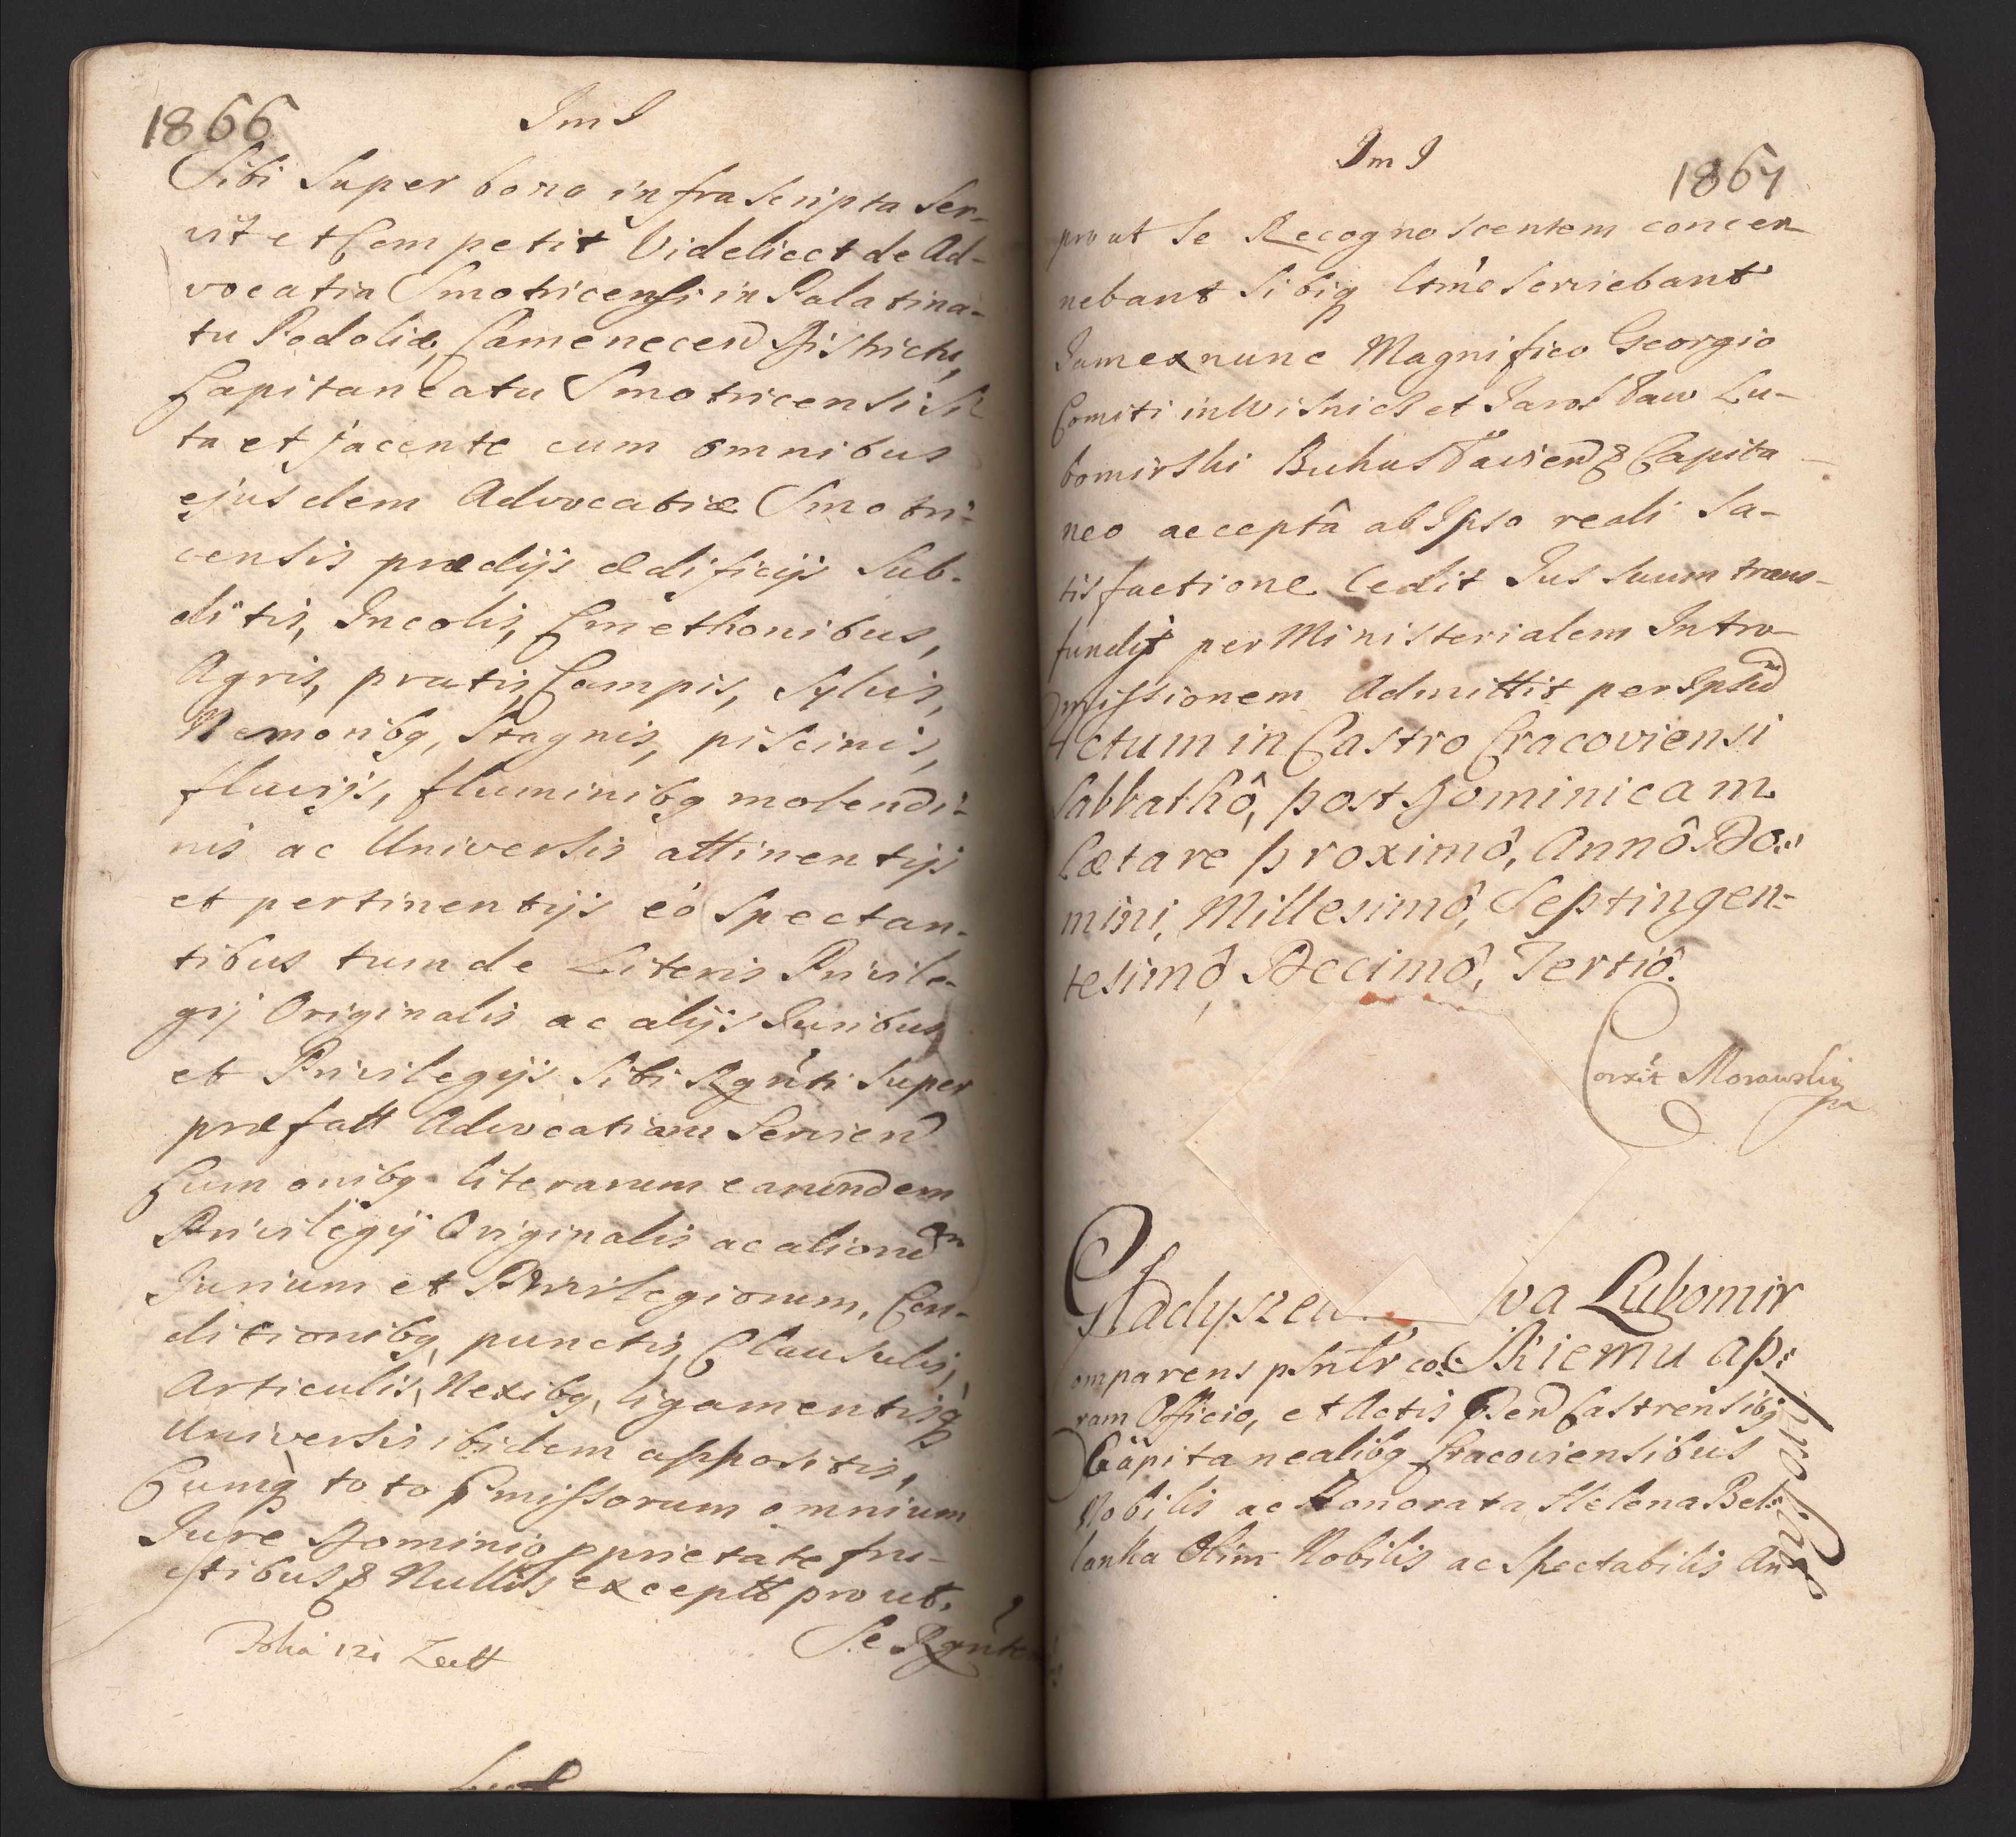 1866
Im I
Sibi Super bona infrascripta ser-
vit et Competit Videlicet de Ad-
vocatia Smotricensi in Palatina-
tu Podoliæ, Camenecen Districtu,
Capitaneatu Smotricensi Si-
ta et jacente cum omnibus
ejusdem Advocatiæ Smotri-
censis prædijs ædificijs Sub-
ditis, Incolis, Cmethonibus,
Agris, pratis, Campis, Sylvis,
Nemoribq, Stagnis, piscinis,
fluvijs, fluminibq molendi-
nis ac Universis attinentijs
et pertinentijs eó Spectan-
tibus tum de Literis Privile-
gij Originalis ac alijs Juribus
et Privilegijs Sibi Rgñti Super
præfatt Advocatiam Servien
Cum oñibq literarum earundem
Privilegij Originalis ac alion
Jurium et Privilegiorum, Con-
ditionibq, punctis, Clausulis,
Articulis, Nexibq, ligamentisq
Universis ibidem appositis,
Cumq toto Pmissorum omnium
Jure Dominio pprietate fru-
ctibus & Nullis exceptt prout.
Se Rgñte
1867
Im I
prout Se Recognoscentem concer-
nebant Sibiq ltmé serviebant
Jam ex nunc Magnifico Georgio
Comiti in Wisnicz et Jarosław Lu-
bomirski Buhusłavien & Capita-
neo acceptâ ab Ipso reali Sa-
tisfactione Cedit Jus suum trans-
fundit per Ministerialem Intro-
missionem Admittit per Ipsū
Actum in Castro Cracoviensi
Sabbathô, post Dominicam
Lætare proximô, Annô Do-
mini, Millesimô, Septingen-
tesimô Decimô, Tertiô.
Corxit Morawski
Gładyszew wa Lubomir
omparens psntr co Skiemu ap:
ram Officio, et Actis Pen Castrensibq
Capitanealibq Cracoviensibus
Nobilis ac Honorata Helena Bel-
lanka Olim Nobilis ac Spectabilis An